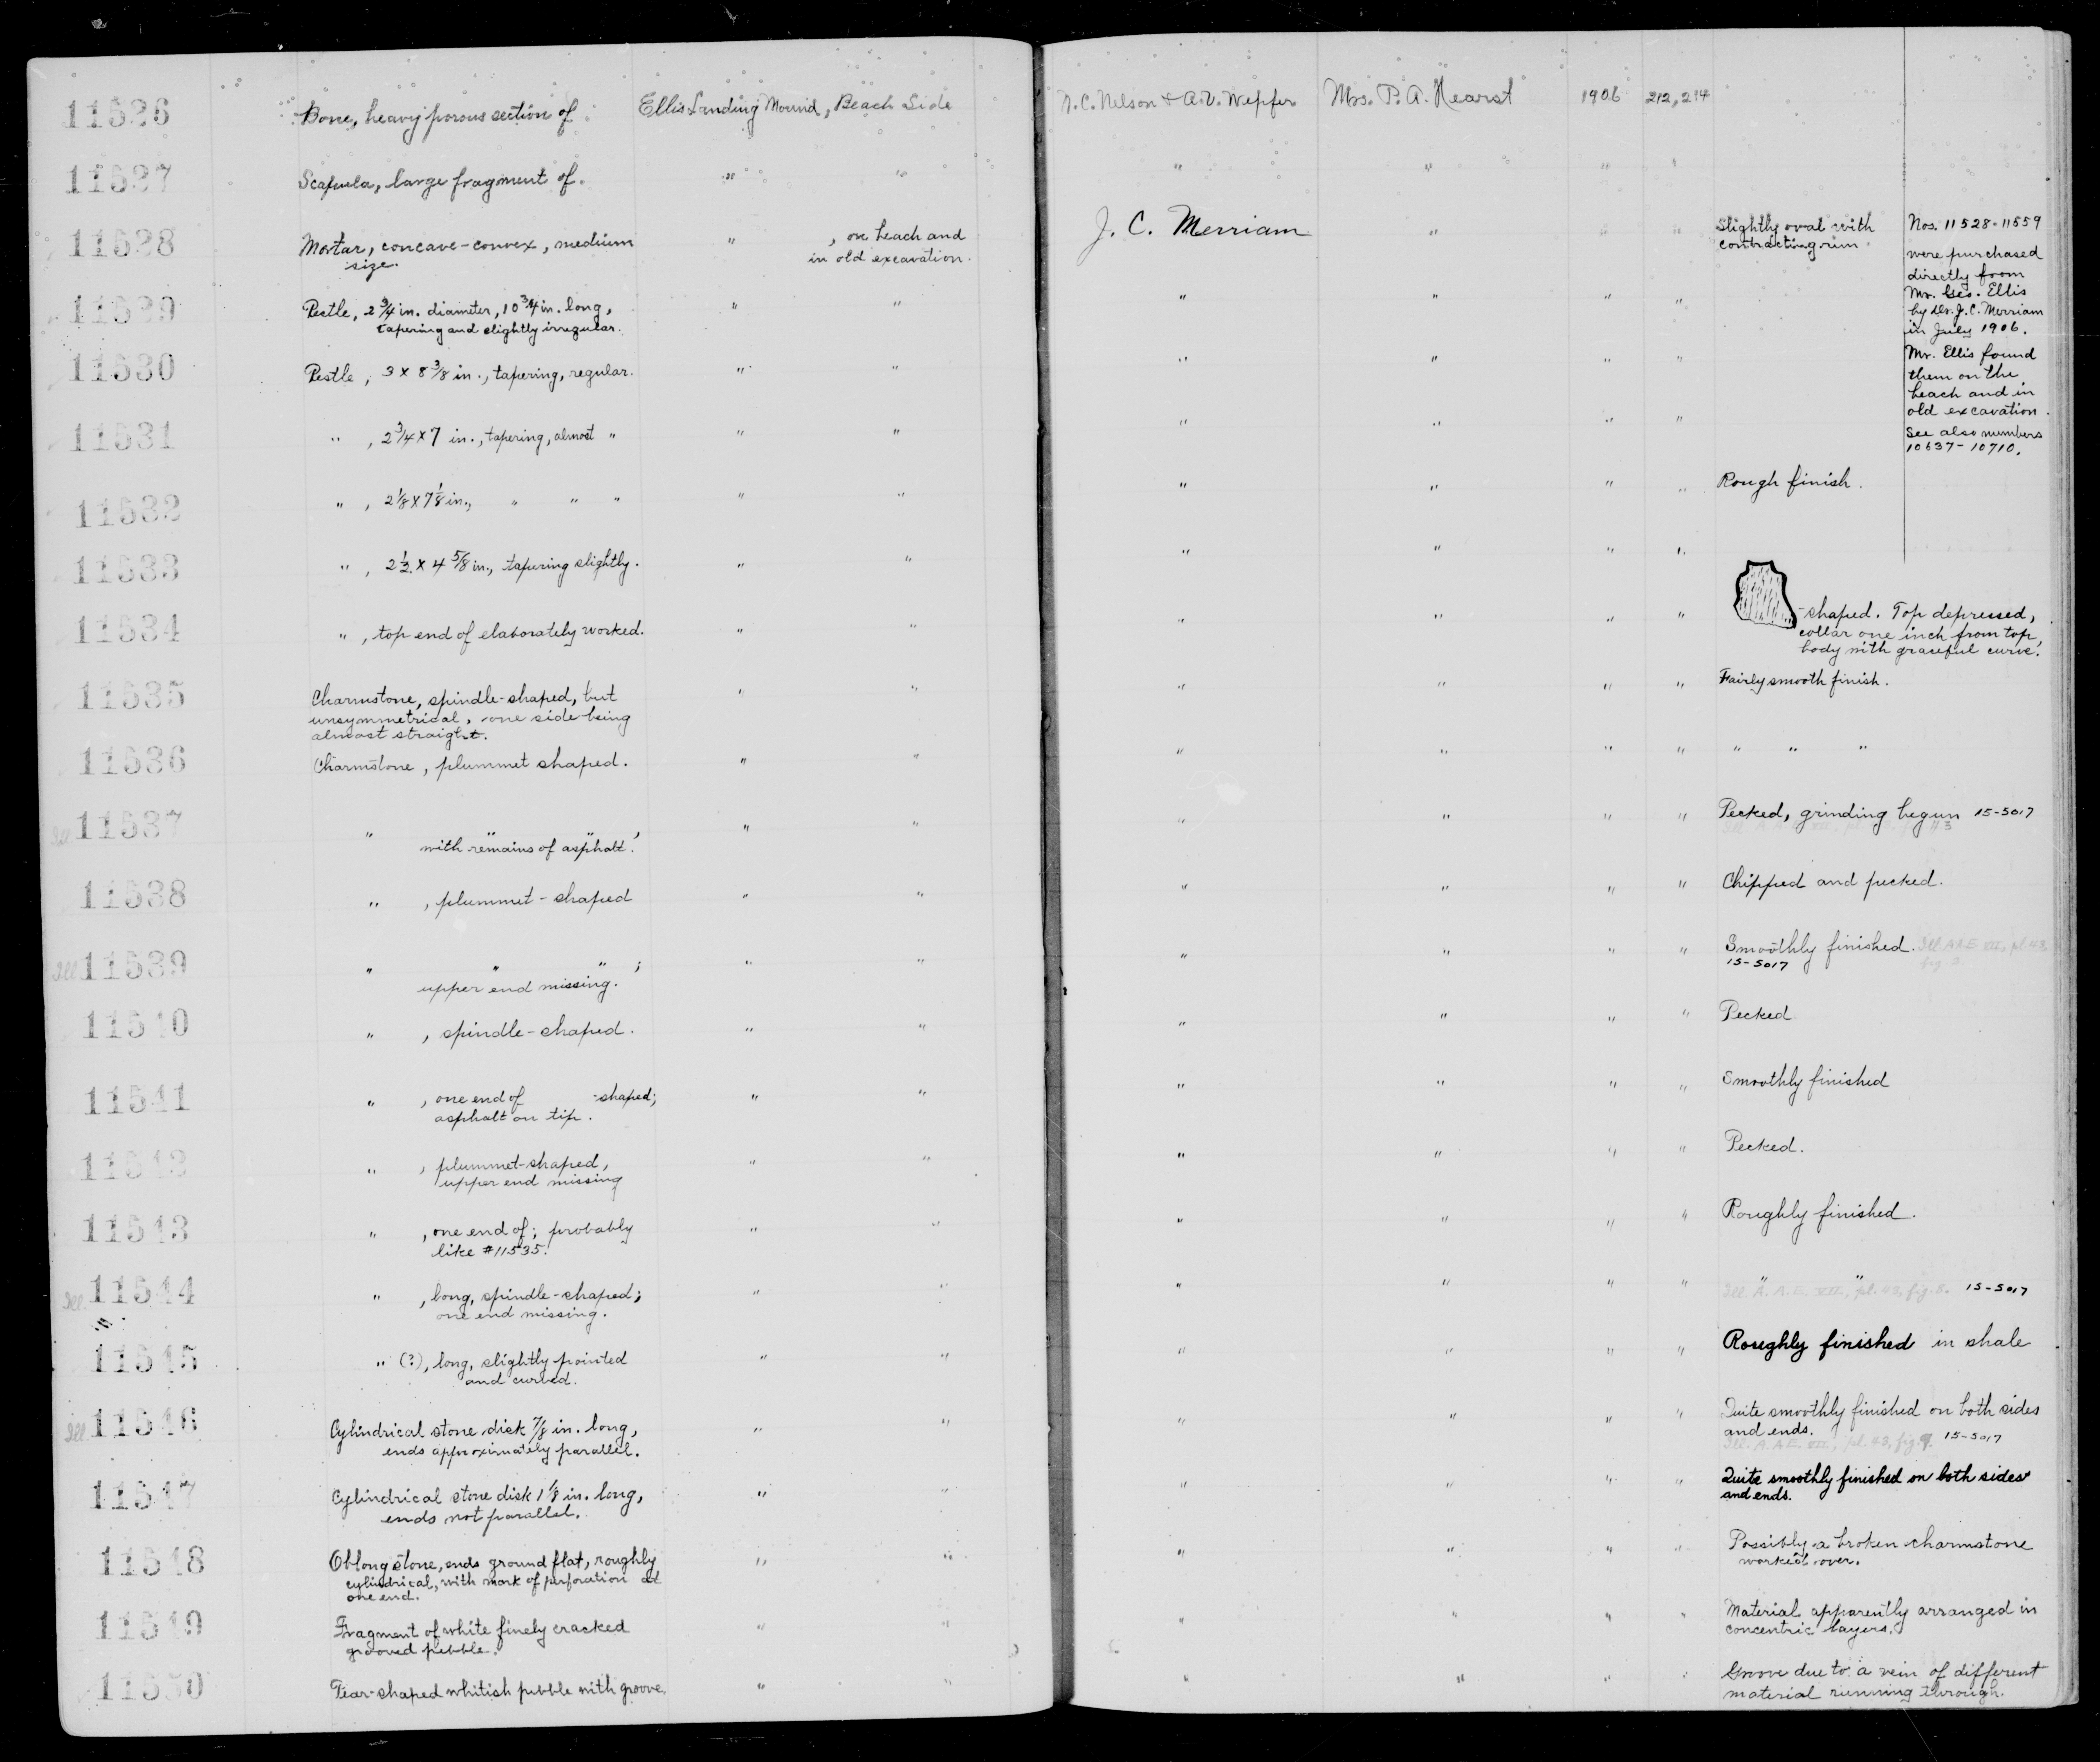 11526 Bone, heavy porous section of. Ellis Landing Mound, Beach Side N.C. Nelson & A.V. Wepfer Mrs. P. A. Hearst 1906 212, 214
11527 Scapula, large fragment of. " " " " " "
11528 Mortar, concave-convex, medium " , on beach and J. C. Merriam " " " Slightly oval with Nos. 11528-11559
size. in old excavation. contracting rim were purchased
directly from
11529 Pestle, 2 3/4 in. diameter, 10 3/4 in. long, " " " " " " Mr. Geo. Ellis
tapering and slightly irregular. by Dr. J. C. Merriam
in July 1906.
11530 Pestle, 3 x 8 3/8 in., tapering, regular. " " " " " " Mr. Ellis found
them on the
beach and in
old excavation.
11531 " , 2 3/4 x 7 in., tapering, almost " " " " " " " See also numbers
10637-10710.
11532 " , 2 1/8 x 7 1/8 in., " " " " " " " " " Rough finish.
11533 " , 2 1/2 x 4 5/8 in., tapering slightly. " " " " " "
11534 " , top end of elaborately worked. " " " " " " -shaped. Top depressed,
collar one inch from top,
body with graceful curve.
11535 Charmstone, spindle-shaped, but " " " " " " Fairly smooth finish.
unsymmetrical, one side being
almost straight.
11536 Charmstone, plummet shaped. " " " " " " " " "
Ill. 11537 " " " , " " " " " " Pecked, grinding begun 15-5017
with remains of asphalt.
11538 " , plummet-shaped " " " " " " Chipped and pecked.
Ill. 11539 " " " ; " " " " " " Smoothly finished. Ill. A.A.E. VII, pl. 43,
upper end missing. 15-5017 fig.
11540 " , spindle-shaped. " " " " " " Pecked
11541 " , one end of -shaped; " " " " " " Smoothly finished
asphalt on tip.
11542 " , plummet-shaped, " " " " " " Pecked.
upper end missing
11543 " , one end of; probably " " " " " " Roughly finished.
like #11535.
Ill. 11544 " , long, spindle-shaped; " " " " " " " "
one end missing. Ill. A. A. E. VII, pl. 43, fig. 8. 15-5017
11545 " (?), long, slightly pointed " " " " " " Roughly finished in shale
and curved.
Ill. 11546 Cylindrical stone disk 7/8 in. long, " " " " " " Quite smoothly finished on both sides
ends approximately parallel. and ends.
Ill. A. A. E. VII, pl. 43, fig. 9. 15-5017
11547 Cylindrical stone disk 1 1/8 in. long, " " " " " " Quite smoothly finished on both sides
ends not parallel. and ends.
11548 Oblong stone, ends ground flat, roughly " " " " " " Possibly a broken charmstone
cylindrical, with mark of perforation at worked over.
one end.
11549 Fragment of white finely cracked " " " " " " Material apparently arranged in
grooved pebble. concentric layers.
11550 Tear-shaped whitish pebble with groove. " " " " " " Groove due to a vein of different
material running through.